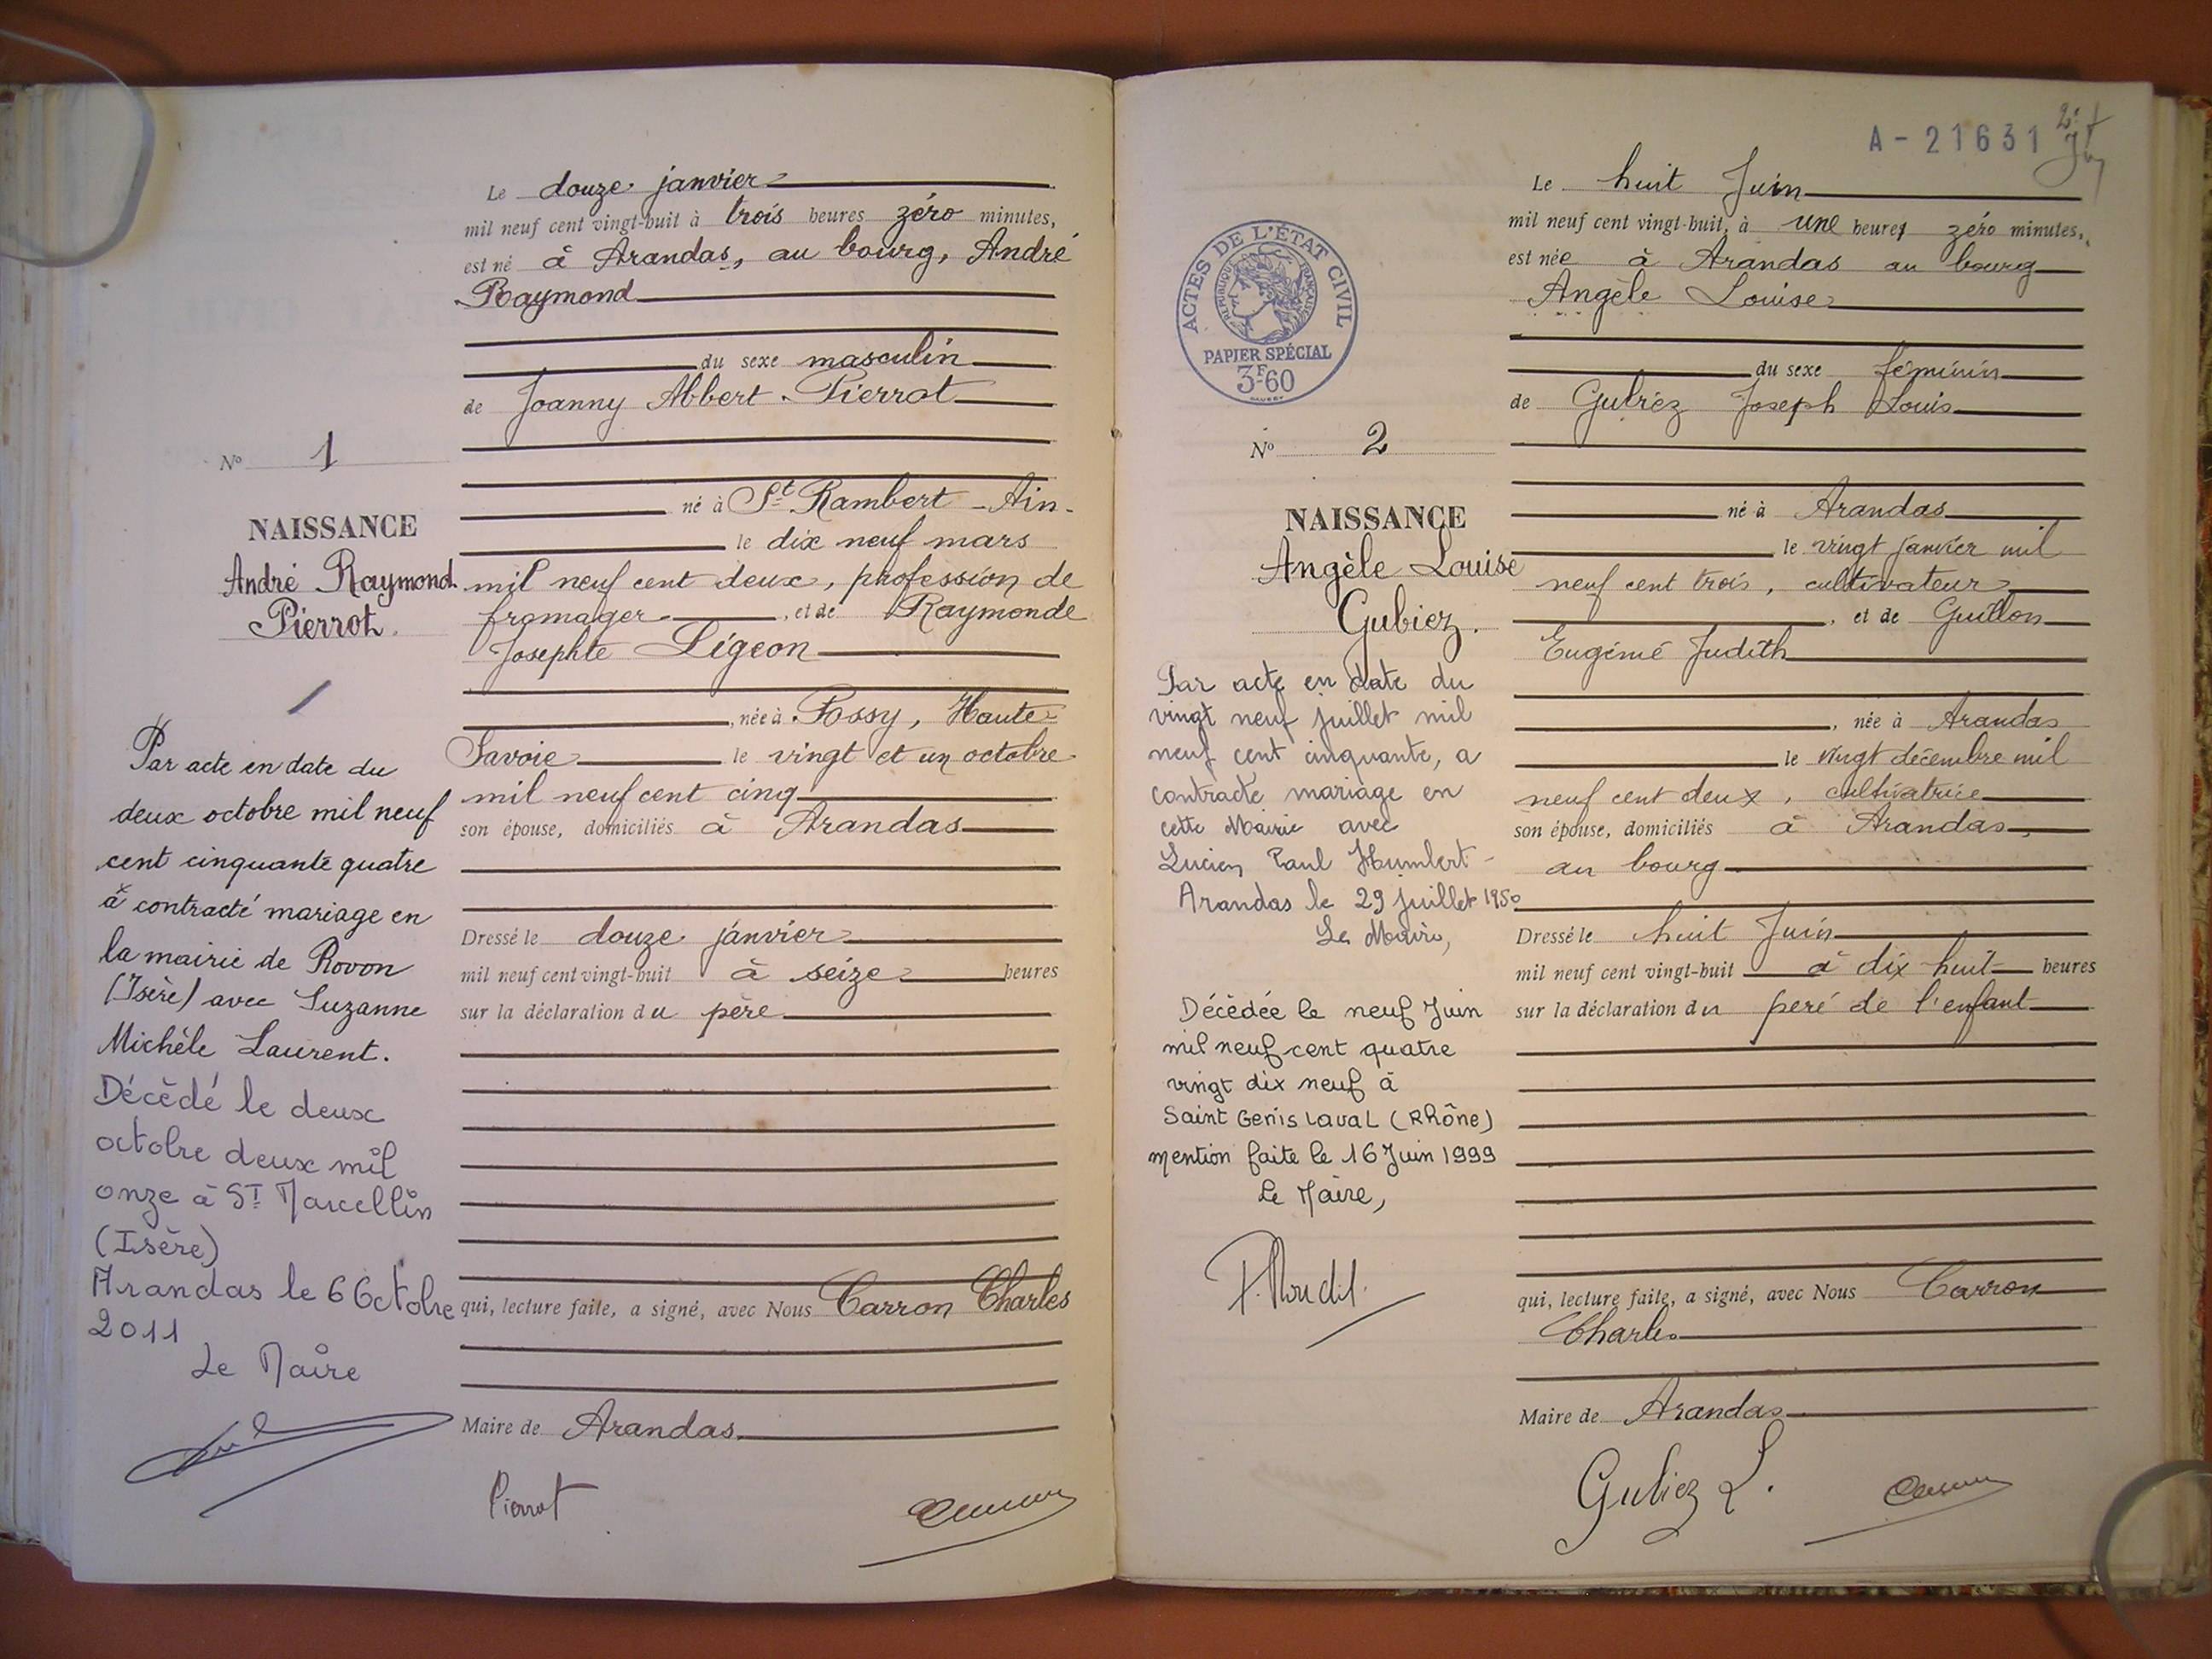 Le douze janvier
mil neuf cent vingt-huit à trois heures zéro minutes,
est né à Arandas, au bourg, André
Raymond
du sexe masculin
de Joanny Albert Pierrot
né à St Rambert - Ain -
le dix neuf mars
mil neuf cent deux, profession de
fromager, et de Raymonde
Josephte Légeon
, née à Passy, Haute
Savoie le vingt et un octobre
mil neuf cent cinq
son épouse, domiciliés à Arandas
Dressé le douze janvier
mil neuf cent vingt-huit à seize heures
sur la déclaration du père
qui, lecture faite, a signé, avec Nous Carron Charles
Maire de Arandas
Pierrot
No 1
NAISSANCE
André Raymond
Pierrot.
Par acte en date du
deux octobre mil neuf
cent cinquante quatre
a contracté mariage en
la mairie de Rovon
(Isère) avec Suzanne
Michèle Laurent.
Décédé le deux
octobre deux mil
onze à St Marcellin
(Isère)
Arandas le 6 Octobre
2011
Le Maire
A - 21631
Le huit Juin
mil neuf cent vingt-huit, à une heures zéro minutes,
est née à Arandas au bourg
Angèle Louise
du sexe féminin
de Gubiez Joseph Louis
né à Arandas
le vingt janvier mil
neuf cent trois, cultivateur
, et de Guillon
Eugénie Judith
, née à Arandas
le vingt décembre mil
neuf cent deux, cultivatrice
son épouse, domiciliés à Arandas,
au bourg
Dressé le huit Juin
mil neuf cent vingt-huit à dix huit heures
sur la déclaration du père de l'enfant
qui, lecture faite, a signé, avec Nous Carron
Charles
Maire de Arandas
Gubiez L.
ACTES DE L'ÉTAT CIVIL
RÉPUBLIQUE FRANÇAISE
PAPIER SPÉCIAL
3F60
No 2
NAISSANCE
Angèle Louise
Gubiez.
Par acte en date du
vingt neuf juillet mil
neuf cent cinquante, a
contracté mariage en
cette Mairie avec
Lucien Paul Humbert -
Arandas le 29 juillet 1950
Le Maire,
Décédée le neuf Juin
mil neuf cent quatre
vingt dix neuf à
Saint Genis Laval (Rhône)
mention faite le 16 Juin 1999
Le Maire,